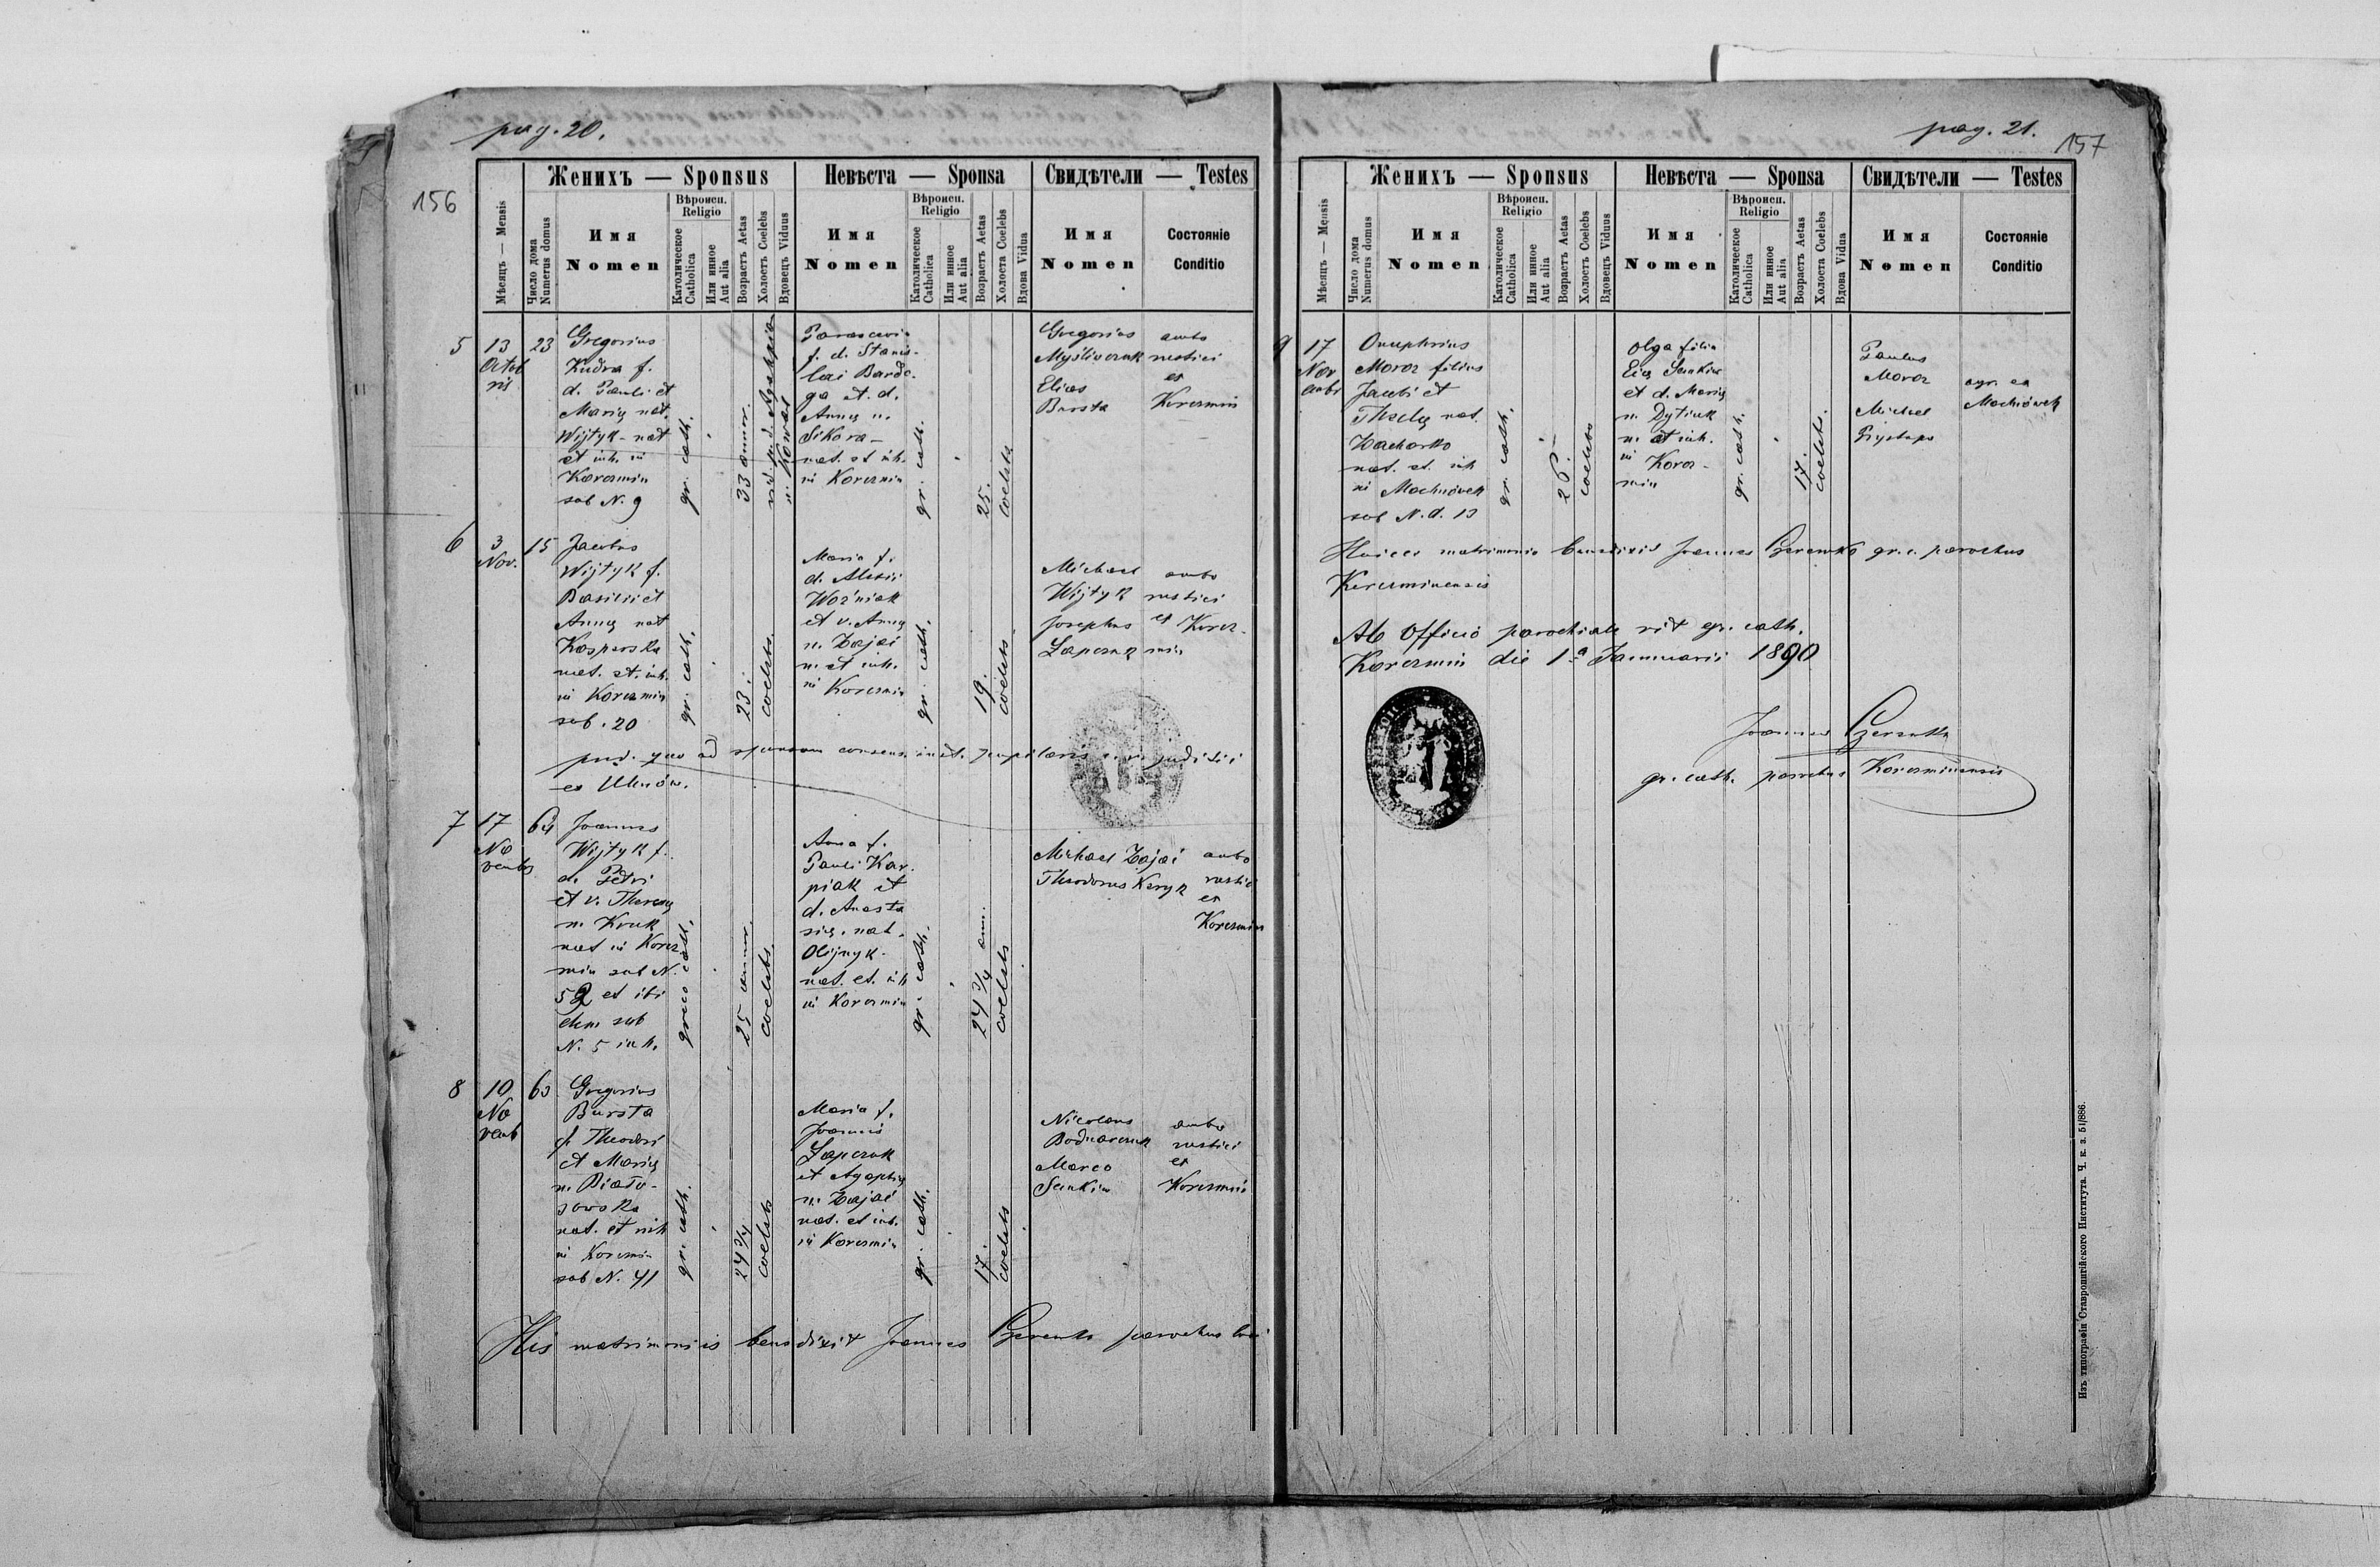 pag. 20.
156
Женихъ — Sponsus
Невѣста — Sponsa
Свидѣтели — Testes
Мѣсяцъ — Mensis
Число дома
Numerus domus
Имя
Nomen
Вѣроисп.
Religio
Католическое
Catholica
Или инное
Aut alia
Возрастъ Aetas
Холостъ Coelebs
Вдовецъ Viduus
Имя
Nomen
Вѣроисп.
Religio
Католическое
Catholica
Или инное
Aut alia
Возрастъ Aetas
Холоста Coelebs
Вдова Vidua
Имя
Nomen
Состояніе
Conditio
5
13
Octob
ris
23
Gregorius
Kudra f.
d. Pauli et
Marię nat.
Wijtyk - nat
et inh. in
Korczmin
sub N. 9
gr. cath.
33 annor.
n. Kowal
Parascevia
f. d. Stanis-
lai Bardo-
ga et d.
Annę n.
Sikora -
nat. et inh.
in Korczmin
gr. cath.
25.
coelebs
Gregorius
Myśliwczuk
Elias
Bursta
ambo
rustici
ex
Korczmin
6
3
Nov.
15
Jacobus
Wijtyk f.
Basilii et
Annę nat
Kasperska
nat. et. inh.
in Korczmin
sub. 20
gr. cath.
23.
coelebs.
Maria f.
d. Alexii
Woźniak
et v. Annę
n. Zajać
n. et inh.
in Korczmin
gr. cath.
19.
coelebs.
Michael
Wijtyk
Josephus
Łapczuk
ambo
rustici
ex Korcz-
min
prod. quo ad sponsam consens. pupilaris judicii
ex Uhnów.
7
17
No
vembr
64
Joannes
Wijtyk f.
d. Petri
et v. Theresę
n. Kruk
nat in Korcz
min sub N.
52 et ibi
dem sub
N. 5 inh.
greco cath.
25 annor.
coelebs.
Anna f.
Pauli Kar-
piak et
d. Anasta
się. nat.
Olijnyk -
nat. et. inh
in Korczmin
gr. cath.
24 3/4 ann.
coelebs
Michael Zajać
Theodorus Keryk
ambo
rustici
ex
Korczmin
8
10
No
vemb
63
Gregorius
Bursta
f. Theodori
et Marię
n. Biało-
sowska
nat. et inh
in Korczmin
sub N. 41
gr. cath.
24 3/4
coelebs
Maria f.
Joannis
Łapczuk
et Agaphię
n. Zajać
nat. et inh.
in Korczmin
gr. cath.
17.
coelebs
Nicolaus
Bodnarczuk
Marco
Senkiw
ambo
rustici
ex
Korczmin
His matrimoniis benedixit Joannes Czerenko parochus loci
pag. 21.
157
Женихъ — Sponsus
Невѣста — Sponsa
Свидѣтели — Testes
Мѣсяцъ — Mensis
Число дома
Numerus domus
Имя
Nomen
Вѣроисп.
Religio
Католическое
Catholica
Или инное
Aut alia
Возрастъ Aetas
Холостъ Coelebs
Вдовецъ Viduus
Имя
Nomen
Вѣроисп.
Religio
Католическое
Catholica
Или инное
Aut alia
Возрастъ Aetas
Холоста Coelebs
Вдова Vidua
Имя
Nomen
Состояніе
Conditio
9
17
Nov
embr
Onuphrius
Moroz filius
Jacobi et
Theclę nat.
Zacharko
nat. et. inh
in Machnówek
sub N. d. 13
gr. cath.
26.
coelebs
Olga filia
Elię Senkiw
et d. Marię
n. Dytiuk
n. et inh.
in Korcz-
min
gr. cath.
17.
coelebs.
Paulus
Moroz
Michael
agr. ex
Machnówek
Huicce matrimonio benedixit Joannes Czerenko gr. c. parochus
Korczminensis
Ab officio parochiale rit gr. cath.
Korczmin die 1ª Januarii 1890
Joannes Czerenko
gr. cath. parochus Korczminensis
Изъ типографіи Ставропигійского Института. Ч. к. з. 51/886.